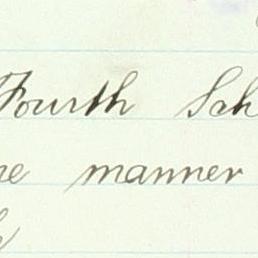 Fourth Sch
manner